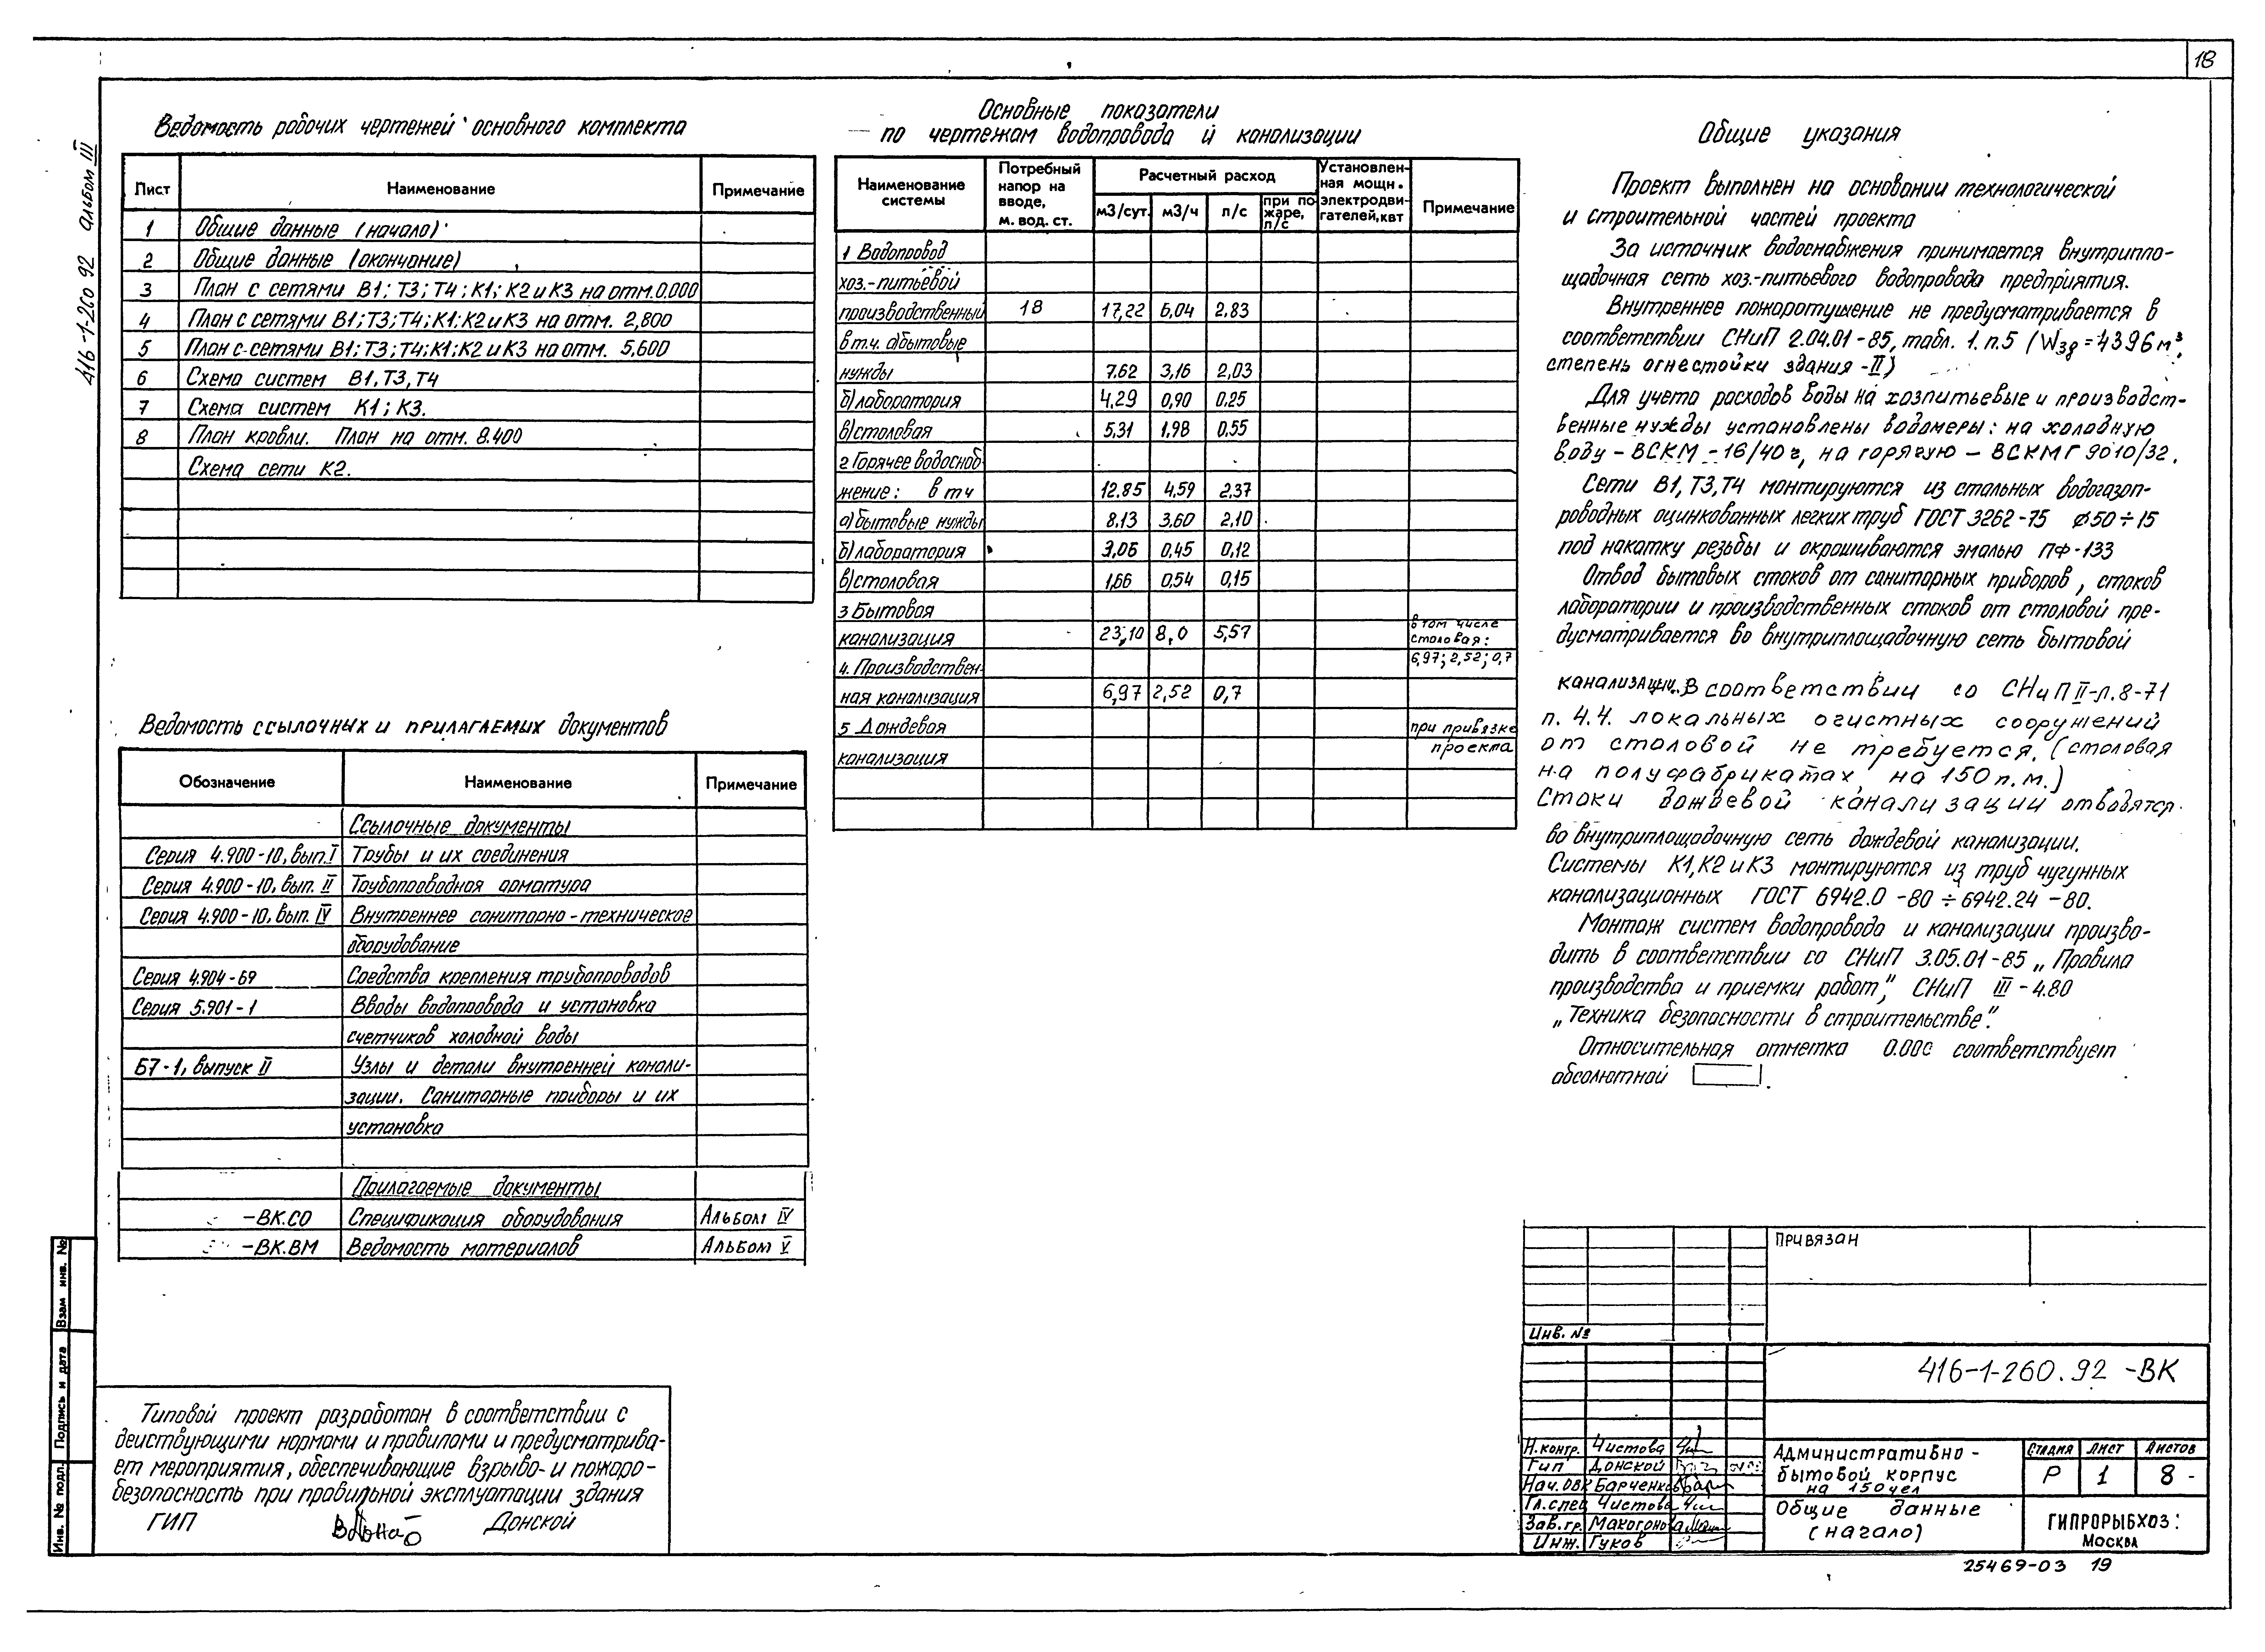 18
416-1-260 92 альбом III
Ведомость рабочих чертежей основного комплекта
Лист Наименование Примечание
1 Общие данные (начало)
2 Общие данные (окончание)
3 План с сетями В1; Т3; Т4; К1; К2 и К3 на отм. 0.000
4 План с сетями В1; Т3; Т4; К1; К2 и К3 на отм. 2,800
5 План с сетями В1; Т3; Т4; К1; К2 и К3 на отм. 5,600
6 Схема систем В1, Т3, Т4
7 Схема систем К1; К3.
8 План кровли. План на отм. 8.400
Схема сети К2.
Ведомость ссылочных и прилагаемих документов
Обозначение Наименование Примечание
Ссылочные документы
Серия 4.900-10, вып. I Трубы и их соединения
Серия 4.900-10, вып. II Трубопроводная арматура
Серия 4.900-10, вып. IV Внутреннее санитарно-техническое
оборудование
Серия 4.904-69 Средства крепления трубопроводов
Серия 5.901-1 Вводы водопровода и установка
счетчиков холодной воды
Б7-1, выпуск II Узлы и детали внутренней канали-
зации. Санитарные приборы и их
установка
Прилагаемые документы
-ВК.СО Спецификация оборудования Альбом IV
-ВК.ВМ Ведомость материалов Альбом V
Типовой проект разработан в соответствии с
действующими нормами и правилами и предусматрива-
ет мероприятия, обеспечивающие взрыво- и пожаро-
безопасность при правильной эксплуатации здания
ГИП Донской
Основные показатели
по чертежам водопровода и канализации
Наименование системы Потребный напор на вводе, м. вод. ст. Расчетный расход Установлен-ная мощн. электродви-гателей, квт Примечание
м3/сут. м3/ч л/с при по жаре, л/с
1 Водопровод
хоз.-питьевой
производственный 18 17,22 6,04 2,83
в т.ч. а)бытовые
нужды 7.62 3,16 2,03
б) лаборатория 4,29 0,90 0,25
в) столовая 5,31 1,98 0,55
2 Горячее водоснаб-
жение: в т ч 12.85 4.59 2.37
а) бытовые нужды 8,13 3,60 2,10
б) лаборатория 3,06 0,45 0,12
в) столовая 1,66 0,54 0,15
3 Бытовая в том числе
канализация 23,10 8,0 5,57 столовая:
4. Производствен- 6,97; 2,52; 0,7
ная канализация 6,97 2,52 0,7
5 Дождевая при привязке
канализация проекта
Общие указания
Проект выполнен на основании технологической
и строительной частей проекта
За источник водоснабжения принимается внутрипло-
щадочная сеть хоз.-питьевого водопровода предприятия.
Внутреннее пожаротушение не предусматривается в
соответствии СНиП 2.04.01-85, табл. 1. п.5 (Wзд = 4396 м³,
степень огнестойки здания -II)
Для учета расходов воды на хозпитьевые и производст-
венные нужды установлены водомеры: на холодную
воду - ВСКМ - 16/40 г, на горячую - ВСКМГ 9010/32.
Сети В1, Т3, Т4 монтируются из стальных водогазоп-
роводных оцинкованных легких труб ГОСТ 3262-75 ⌀50÷15
под накатку резьбы и окрашиваются эмалью ПФ-133
Отвод бытовых стоков от санитарных приборов, стоков
лаборатории и производственных стоков от столовой пре-
дусматривается во внутриплощадочную сеть бытовой
канализации. В соответствии со СНиП II-Л.8-71
п. 4.4. локальных очистных сооружений
от столовой не требуется. (столовая
на полуфабрикатах на 150 п.м.)
Стоки дождевой канализации отводятся
во внутриплощадочную сеть дождевой канализации.
Системы К1, К2 и К3 монтируются из труб чугунных
канализационных ГОСТ 6942.0 -80 ÷ 6942.24 -80.
Монтаж систем водопровода и канализации произво-
дить в соответствии со СНиП 3.05.01-85 „Правила
производства и приемки работ," СНиП III - 4.80
„Техника безопасности в строительстве".
Относительная отметка 0.000 соответствует
абсолютной .
Привязан
Инв. №
416-1-260.92 -ВК
Н.контр. Чистова
Гип Донской
Нач. ОВК Барченков
Гл. спец Чистова
Зав. гр. Макогонова
Инж. Гуков
Административно-
бытовой корпус
на 150 чел
Стадия Лист Листов
Р 1 8
Общие данные
(начало)
ГИПРОРЫБХОЗ
Москва
25469-03 19
Инв. № подл. Подпись и дата Взам инв. №